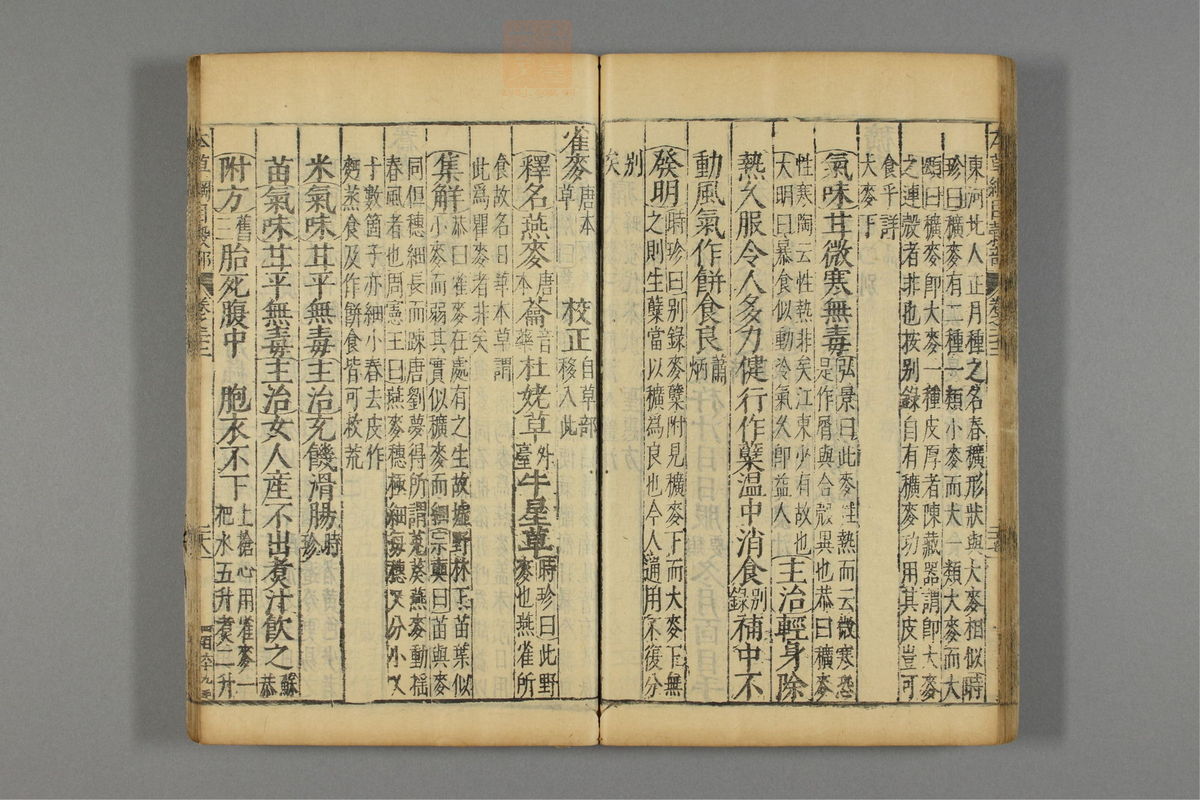 東河北人正月種之名春穬形狀與大麥相似時
珍曰穬麥有二種一類小麥而大一類大麥而大
頌曰穬麥即大麥一種皮厚者陳藏器謂即大麥
之連殼者非也按别錄自有穬麥功用其皮豈可
食乎詳
大麥下
氣味甘微寒無毒弘景曰此麥性熱而云微寒恐
是作屑與合殼異也恭曰穬麥
性寒陶云性熱非矣江東少有故也
大明曰暴食似動冷氣久即益人主治輕身除
熱久服令人多力健行作糵温中消食别錄補中不
動風氣作餅食良蕭炳
發明時珍曰别錄麥糵附見穬麥下而大麥下無
之則生糵當以穬爲良也今人通用不復分
别
矣
雀麥唐本草 校正自草部移入此
釋名燕麥唐本蘥音藥杜姥草外臺牛星草時珍曰此野
麥也燕雀所
食故名曰草本草謂
此爲瞿麥者非矣
集解恭曰雀麥在處有之生故墟野林下苗葉似
小麥而弱其實似穬麥而細宗奭曰苗與麥
同但穗細長而疎唐劉夢得所謂菟葵燕麥動揺
春風者也周憲王曰燕麥穗極細每穗又分小叉
十數箇子亦細小舂去皮作
麪蒸食及作餅食皆可救荒
米氣味甘平無毒主治充饑滑腸時珍
苗氣味甘平無毒主治女人産不出煮汁飲之蘇恭
附方舊三胎死腹中 胞衣不下上搶心用雀麥一
把水五升煮二升
本草綱目穀部